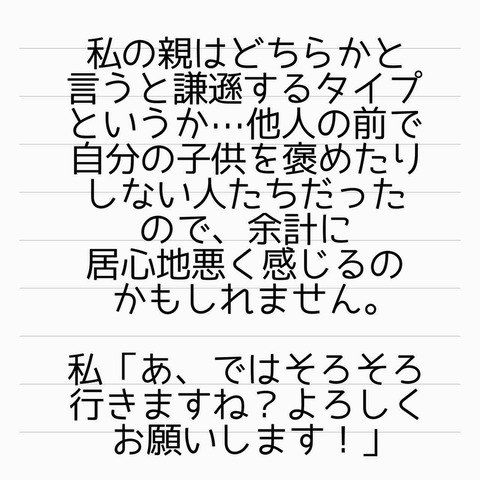 私の親はどちらかと
言うと謙遜するタイプ
というか…他人の前で
自分の子供を褒めたり
しない人たちだった
ので、余計に
居心地悪く感じるの
かもしれません。
私「あ、ではそろそろ
行きますね？よろしく
お願いします！」